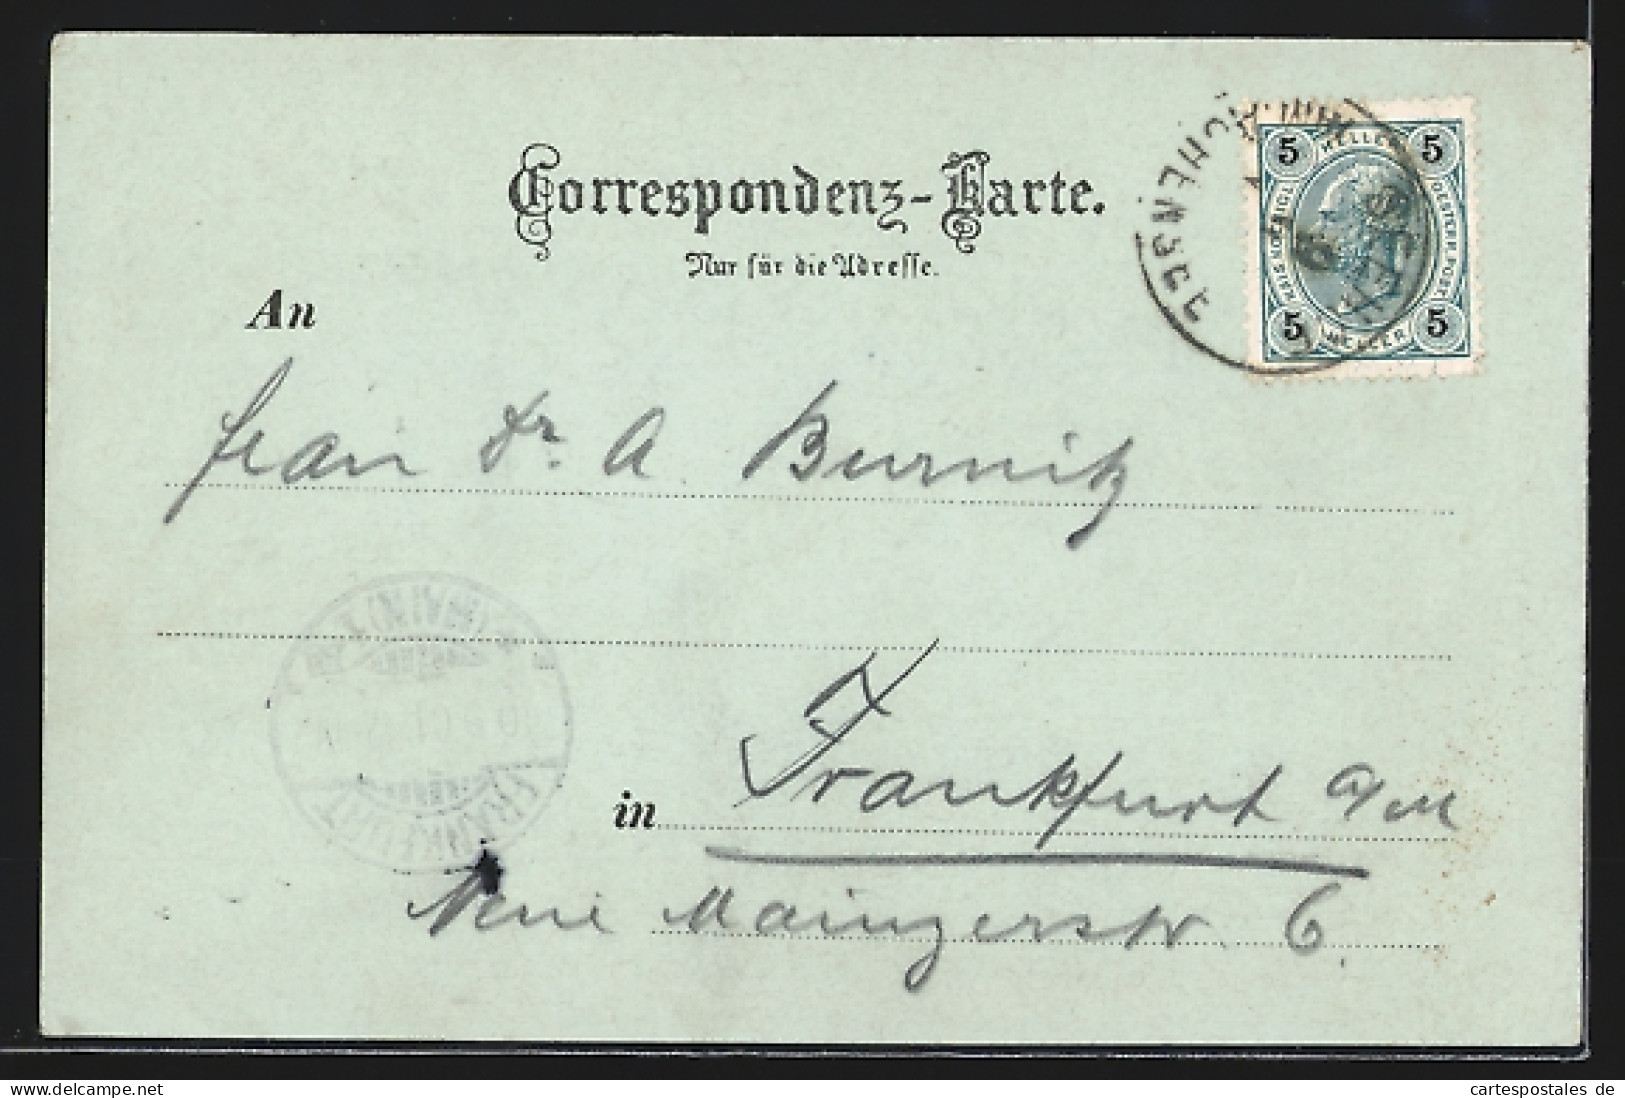 Correspondenz-Karte.
Nur für die Adresse.
An
Frau Dr. A Burnitz
in Frankfurt a/M
Neue Mainzerstr. 6.
5 HELLER 5
5 HELLER 5
OESTERR. POST
ACHENSEE
FRANKFURT
(MAIN)
www.delcampe.net
cartespostales de